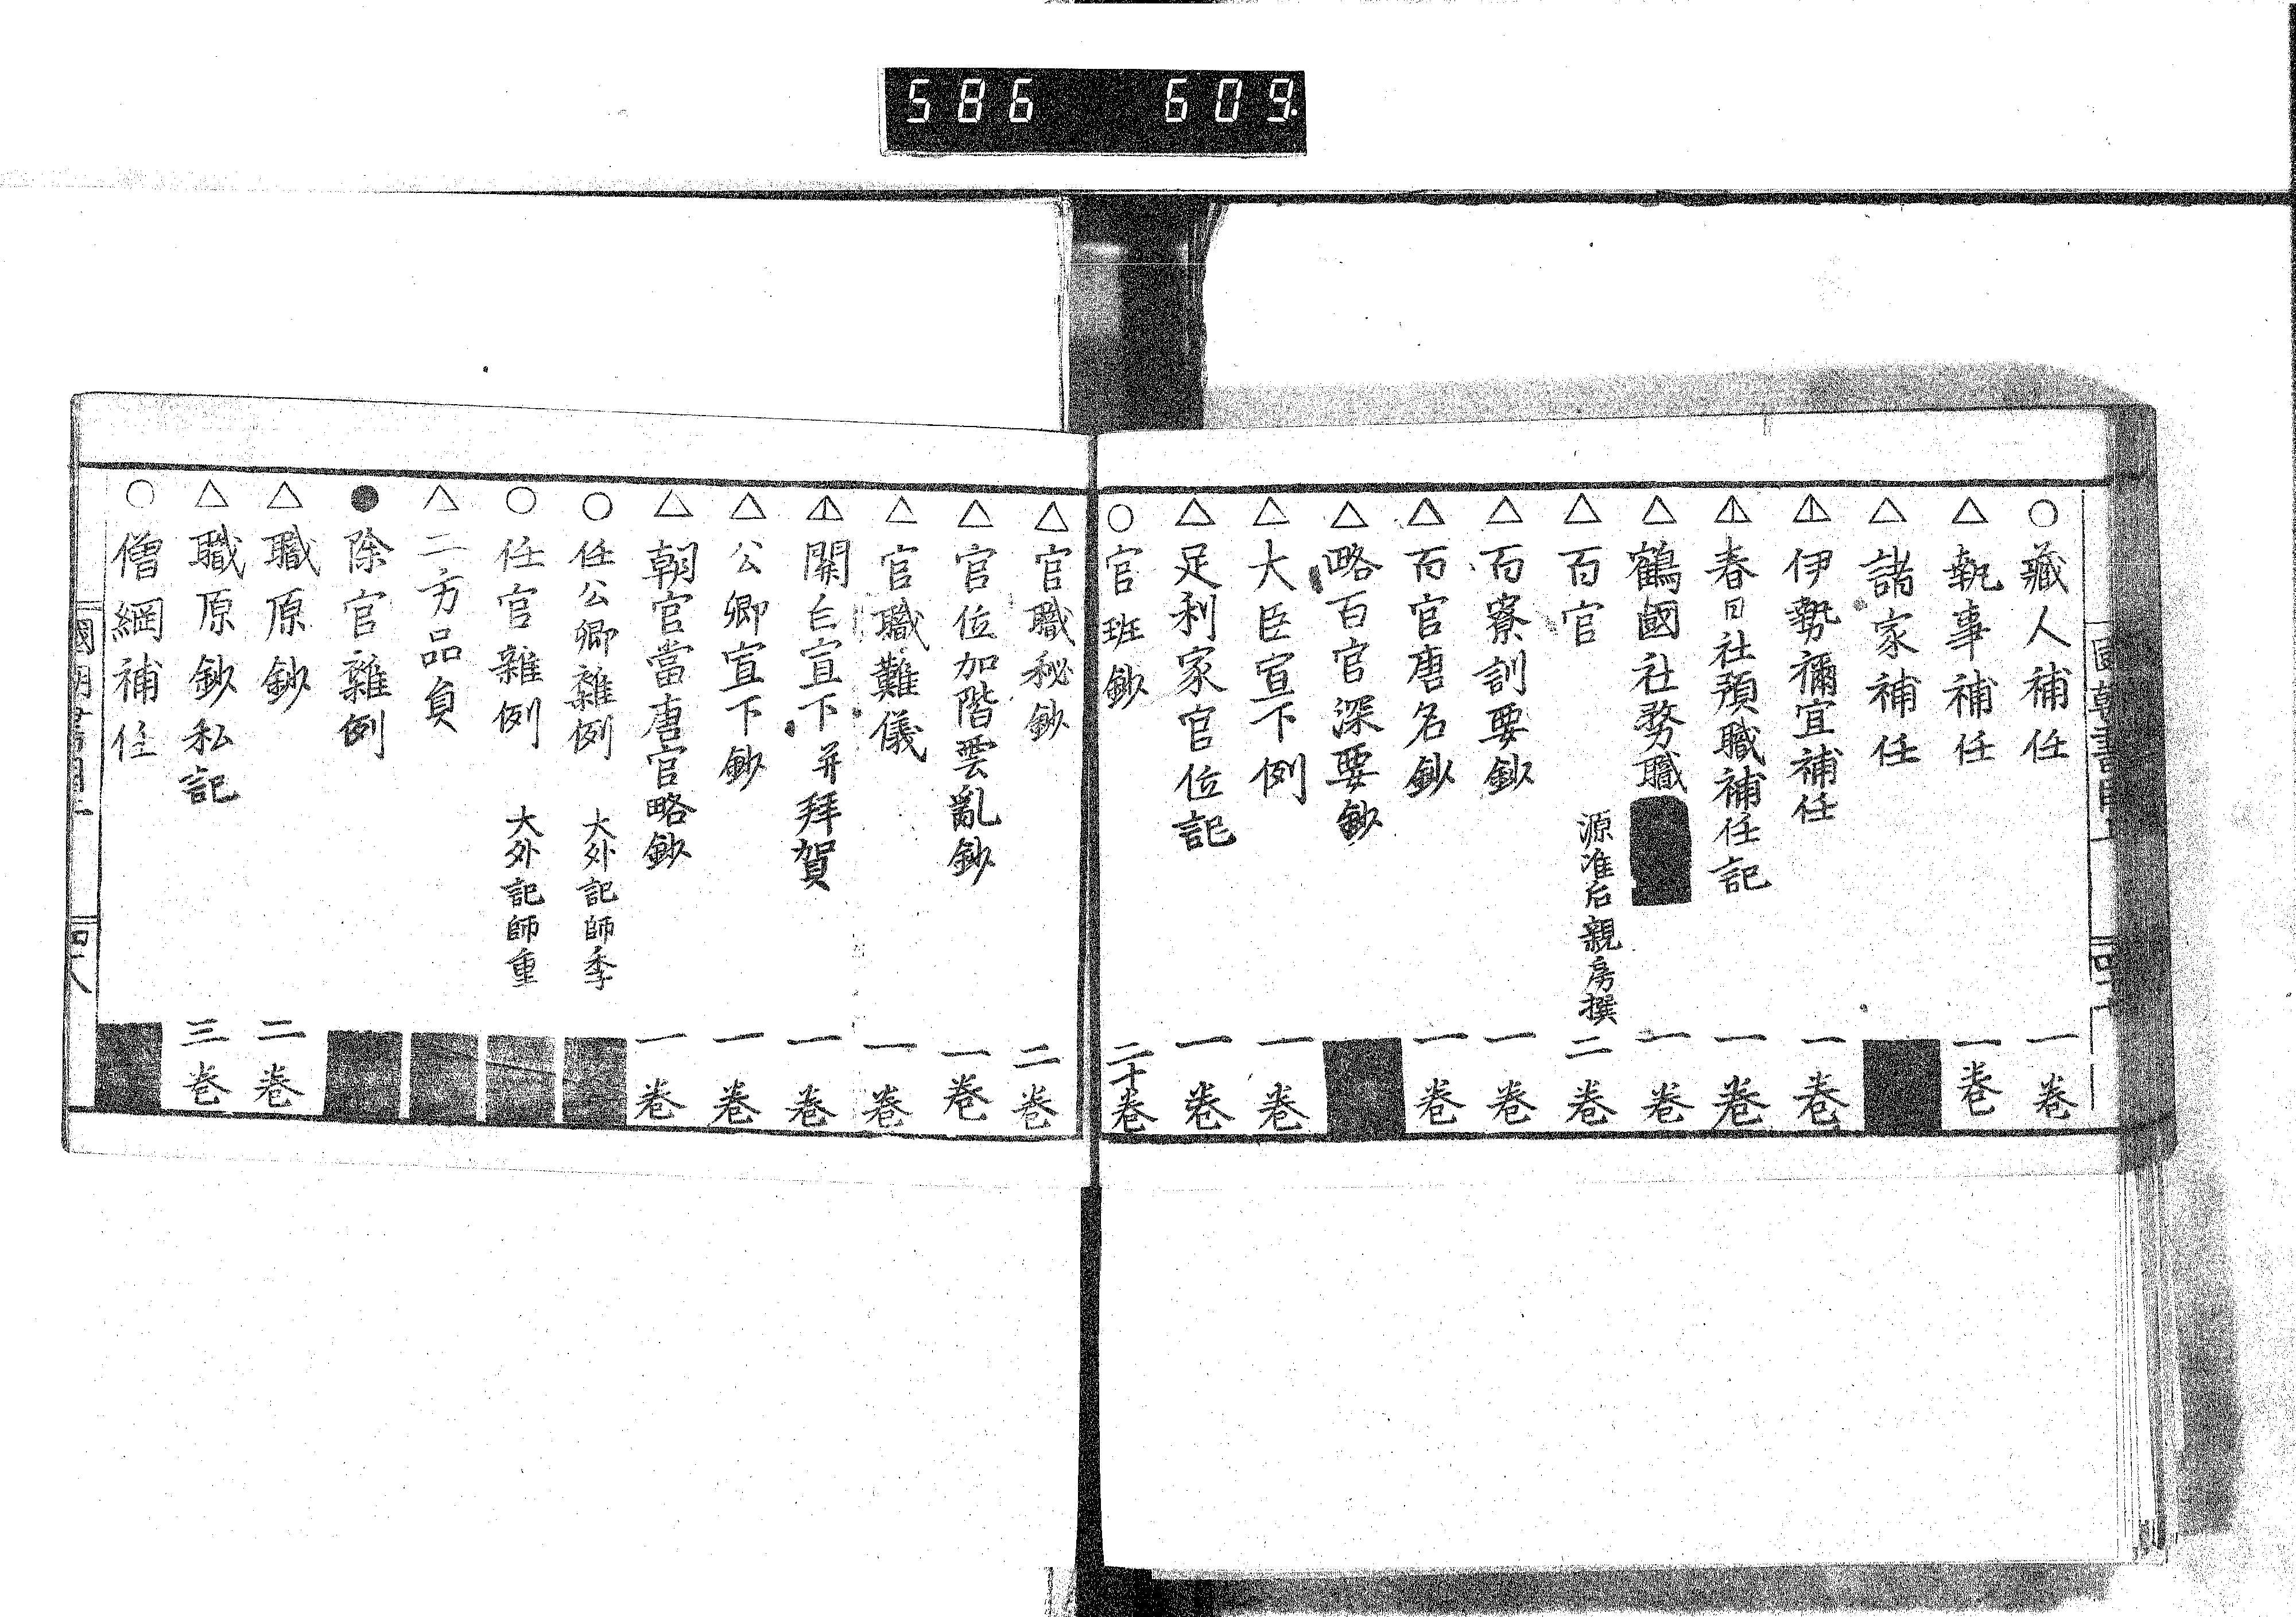 586 609.
○藏人補任 一卷
△執事補任 一卷
△諸家補任
△伊勢禰宜補任 一卷
△春日社預職補任記 一卷
△鶴國社務職 一卷
△百官 源准后親房撰 二卷
△百寮訓要鈔 一卷
△百官唐名鈔 一卷
△略百官深要鈔
△大臣宣下例 一卷
△足利家官位記 一卷
○官班鈔 二十卷
△官職秘鈔 二卷
△官位加階雲亂鈔 一卷
△官職難儀 一卷
△關白宣下并拜賀 一卷
△公卿宣下鈔 一卷
△朝官當唐官略鈔 一卷
○任公卿雜例 大外記師季
○任官雜例 大外記師重
△二方品負
●除官雜例
△職原鈔 二卷
△職原鈔私記 三卷
○僧綱補任